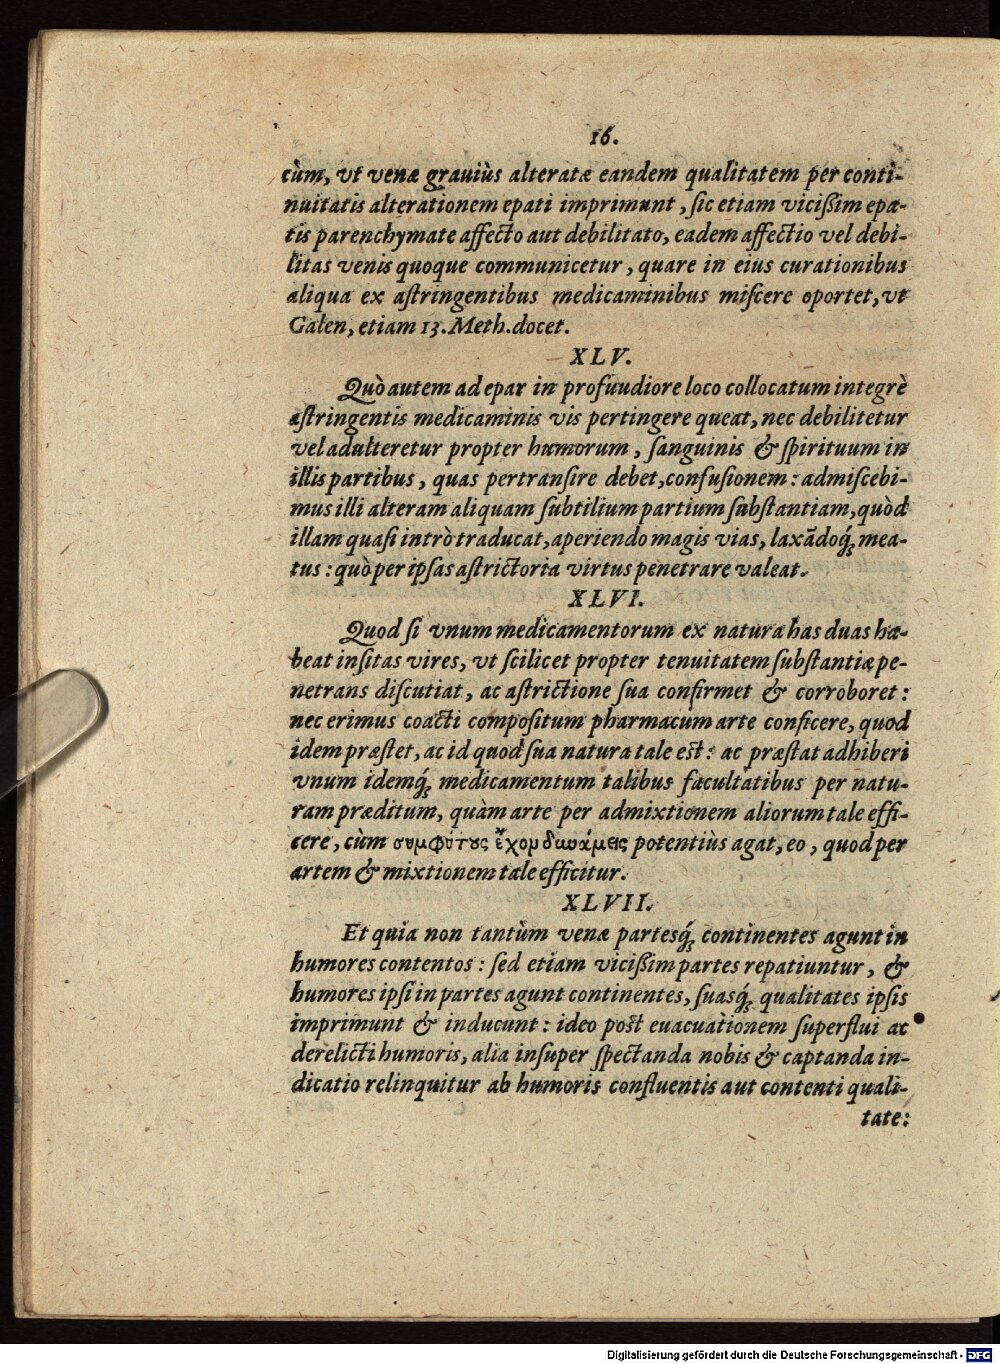 16.
cùm, vt venæ grauiùs alteratæ eandem qualitatem per conti-
nuitatis alterationem epati imprimunt, sic etiam vicißim epa-
tis parenchymate affecto aut debilitato, eadem affectio vel debi-
litas venis quoque communicetur, quare in eius curationibus
aliqua ex astringentibus medicaminibus miscere oportet, vt
Galen, etiam 13. Meth. docet.
XLV.
Quò autem ad epar in profuudiore loco collocatum integrè
astringentis medicaminis vis pertingere queat, nec debilitetur
vel adulteretur propter humorum, sanguinis & spirituum in
illis partibus, quas pertransire debet, confusionem: admiscebi-
mus illi alteram aliquam subtilium partium substantiam, quòd
illam quasi intrò traducat, aperiendo magis vias, laxãdoq́; mea-
tus: quò per ipsas astrictoria virtus penetrare valeat.
XLVI.
Quod si vnum medicamentorum ex natura has duas ha-
beat insitas vires, vt scilicet propter tenuitatem substantiæ pe-
netrans discutiat, ac astrictione sua confirmet & corroboret:
nec erimus coacti compositum pharmacum arte conficere, quod
idem præstet, ac id quod sua natura tale est: ac præstat adhiberi
vnum idemq́; medicamentum talibus facultatibus per natu-
ram præditum, quàm arte per admixtionem aliorum tale effi-
cere, cùm συμφύτȣς ἔχον δυνάμεις potentiùs agat, eo, quod per
artem & mixtionem tale efficitur.
XLVII.
Et quia non tantùm venæ partesq́; continentes agunt in
humores contentos: sed etiam vicißim partes repatiuntur, &
humores ipsi in partes agunt continentes, suasq́; qualitates ipsis
imprimunt & inducunt: ideo post euacuationem superflui ac
derelicti humoris, alia insuper spectanda nobis & captanda in-
dicatio relinquitur ab humoris confluentis aut contenti quali-
tate:
Digitalisierung gefördert durch die Deutsche Forschungsgemeinschaft - DFG